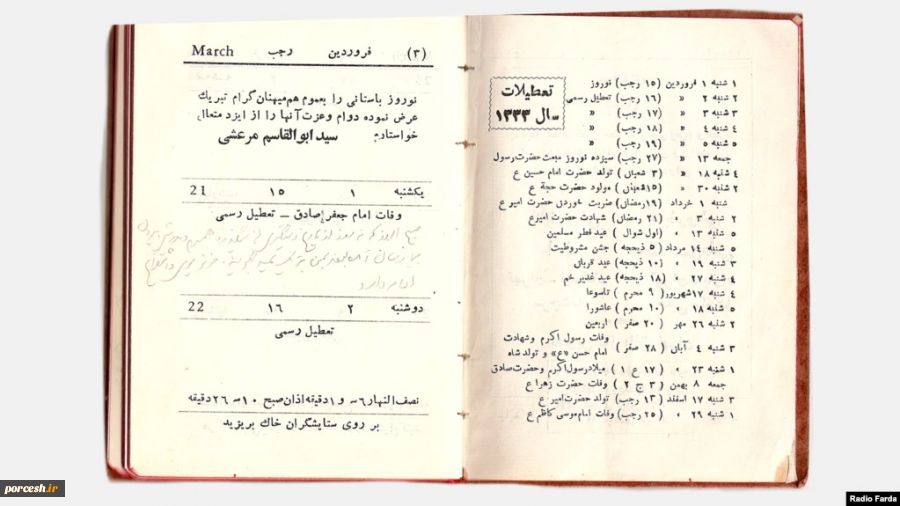 تعطیلات
سال ۱۳۳۳
۱ شنبه ۱ فروردین (۱۵ رجب) نوروز
۲ شنبه ۲ » (۱۶ رجب) تعطیل رسمی
۳ شنبه ۳ » (۱۷ رجب) »
۴ شنبه ۴ » (۱۸ رجب) »
۵ شنبه ۵ » (۱۹ رجب) »
جمعه ۱۳ » (۲۷ رجب) سیزده نوروز مبعث حضرت رسول
۴ شنبه ۱۸ » (۳ شعبان) تولد حضرت امام حسین ع
۲ شنبه ۳۰ » (۱۵شعبان) مولود حضرت حجة ع
شنبه ۱ خرداد (۱۹رمضان) ضربت خوردن حضرت امیر ع
۲ شنبه ۳ » (۲۱ رمضان) شهادت حضرت امیرع
۵ شنبه ۱۳ » (اول شوال) عید فطر مسلمین
۵ شنبه ۱۴ مرداد (۵ ذیحجه) جشن مشروطیت
۳ شنبه ۱۹ » (۱۰ ذیحجه) عید قربان
۴ شنبه ۲۷ » (۱۸ ذیحجه) عید غدیر خم
۴ شنبه ۱۷شهریور (۹ محرم) تاسوعا
۵ شنبه ۱۸ » (۱۰ محرم) عاشورا
۲ شنبه ۲۶ مهر (۲۰ صفر) اربعین
۳ شنبه ۴ آبان (۲۸ صفر) وفات رسول اکرم وشهادت
امام حسن «ع» و تولد شاه
۱ شنبه ۲۳ » (۱۷ ع ۱) میلادرسول‌اکرم وحضرت‌صادق
جمعه ۸ بهمن (۳ ج ۲) وفات حضرت زهرا ع
۳ شنبه ۱۷ اسفند (۱۳ رجب) تولد حضرت‌امیر ع
۱ شنبه ۲۹ » (۲۵ رجب) وفات امام‌موسی کاظم ع
(۳) فروردین رجب March
نوروز باستانی را بعموم هم‌میهنان گرام تبریك
عرض نموده دوام وعزت آنها را از ایزد متعال
خواستارم سید ابوالقاسم مرعشی
یکشنبه ۱ ۱۵ 21
وفات امام جعفر صادق ــ تعطیل رسمی
دوشنبه ۲ ۱۶ 22
تعطیل رسمی
نصف‌النهار ۶ــ و ۱دقیقه اذان صبح ۱۰ــ ۲۶دقیقه
بر روی ستایشگران خاك بریزید
porcesh.ir
Radio Farda